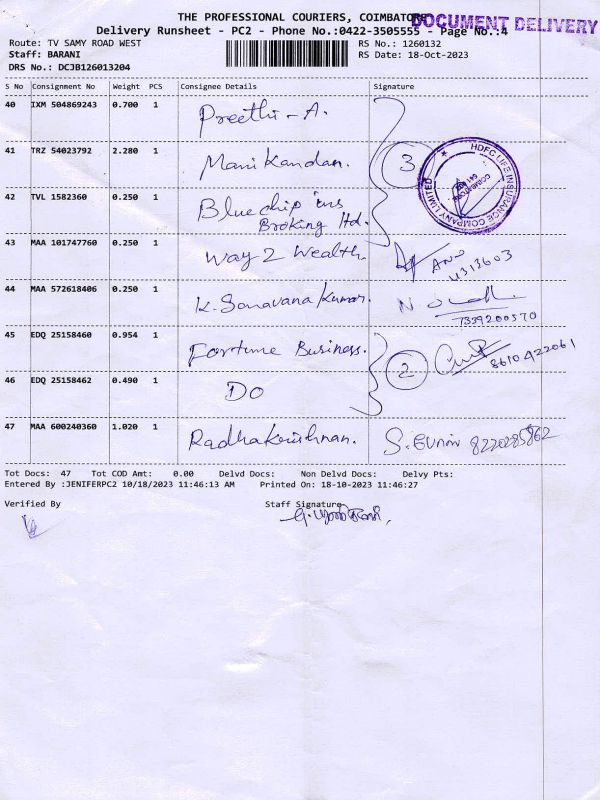 THE PROFESSIONAL COURIERS, COIMBATORE
DOCUMENT DELIVERY
Delivery Runsheet - PC2 - Phone No.:0422-3505555 - Page No.:4
Route: TV SAMY ROAD WEST
RS No.: 1260132
Staff: BARANI
RS Date: 18-Oct-2023
DRS No.: DCJB126013204
S No Consignment No Weight PCS Consignee Details Signature
40 IXM 504869243 0.700 1 Preethi - A.
41 TRZ 54023792 2.280 1 Manikandan. 3
HDFC LIFE INSURANCE COMPANY LIMITED
COIMBATORE
42 TVL 1582360 0.250 1 Bluechip ins
Broking ltd.
43 MAA 101747760 0.250 1 Way 2 Wealth
44 MAA 572618406 0.250 1 K. Saravana Kumar.
7339200570
45 EDQ 25158460 0.954 1 Fortune Business. 2 8610422061
46 EDQ 25158462 0.490 1 DO
47 MAA 600240360 1.020 1 Radhakrishnan. 8220285862
Tot Docs: 47 Tot COD Amt: 0.00 Delvd Docs: Non Delvd Docs: Delvy Pts:
Entered By :JENIFERPC2 10/18/2023 11:46:13 AM Printed On: 18-10-2023 11:46:27
Verified By Staff Signature